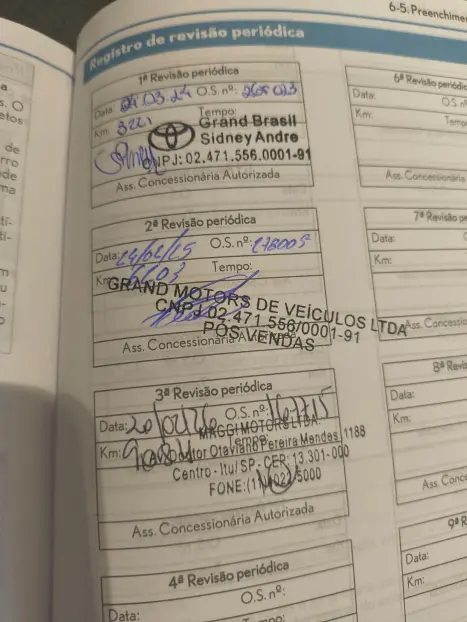 6-5. Preenchime
Registro de revisão periódica
1ª Revisão periódica
Data: 24.03.24 O.S. nº:
Km: 3221 Tempo:
Grand Brasil
Sidney Andre
CNPJ: 02.471.556.0001-91
Ass. Concessionária Autorizada
2ª Revisão periódica
Data: O.S. nº:
Km: Tempo:
GRAND MOTORS DE VEÍCULOS LTDA
CNPJ 02.471.556/0001-91
PÓS VENDAS
Ass. Concessionária
3ª Revisão periódica
Data: 20/02/26 O.S. nº:
MAGGI MOTORS LTDA.
Km: Tempo:
Otaviano Pereira Mendes, 1188
Centro - Itu/SP - CEP: 13.301-000
FONE:(11) 4022-5000
Ass. Concessionária Autorizada
4ª Revisão periódica
Data: O.S. nº:
6ª Revisão periódi
Data: O.S. n
Km: Tempo
Ass. Concessionária
7ª Revisão pe
Data:
Km:
Ass. Concessio
8ª Revis
Data:
Km:
Ass. Conce
9ª R
Data:
Km: